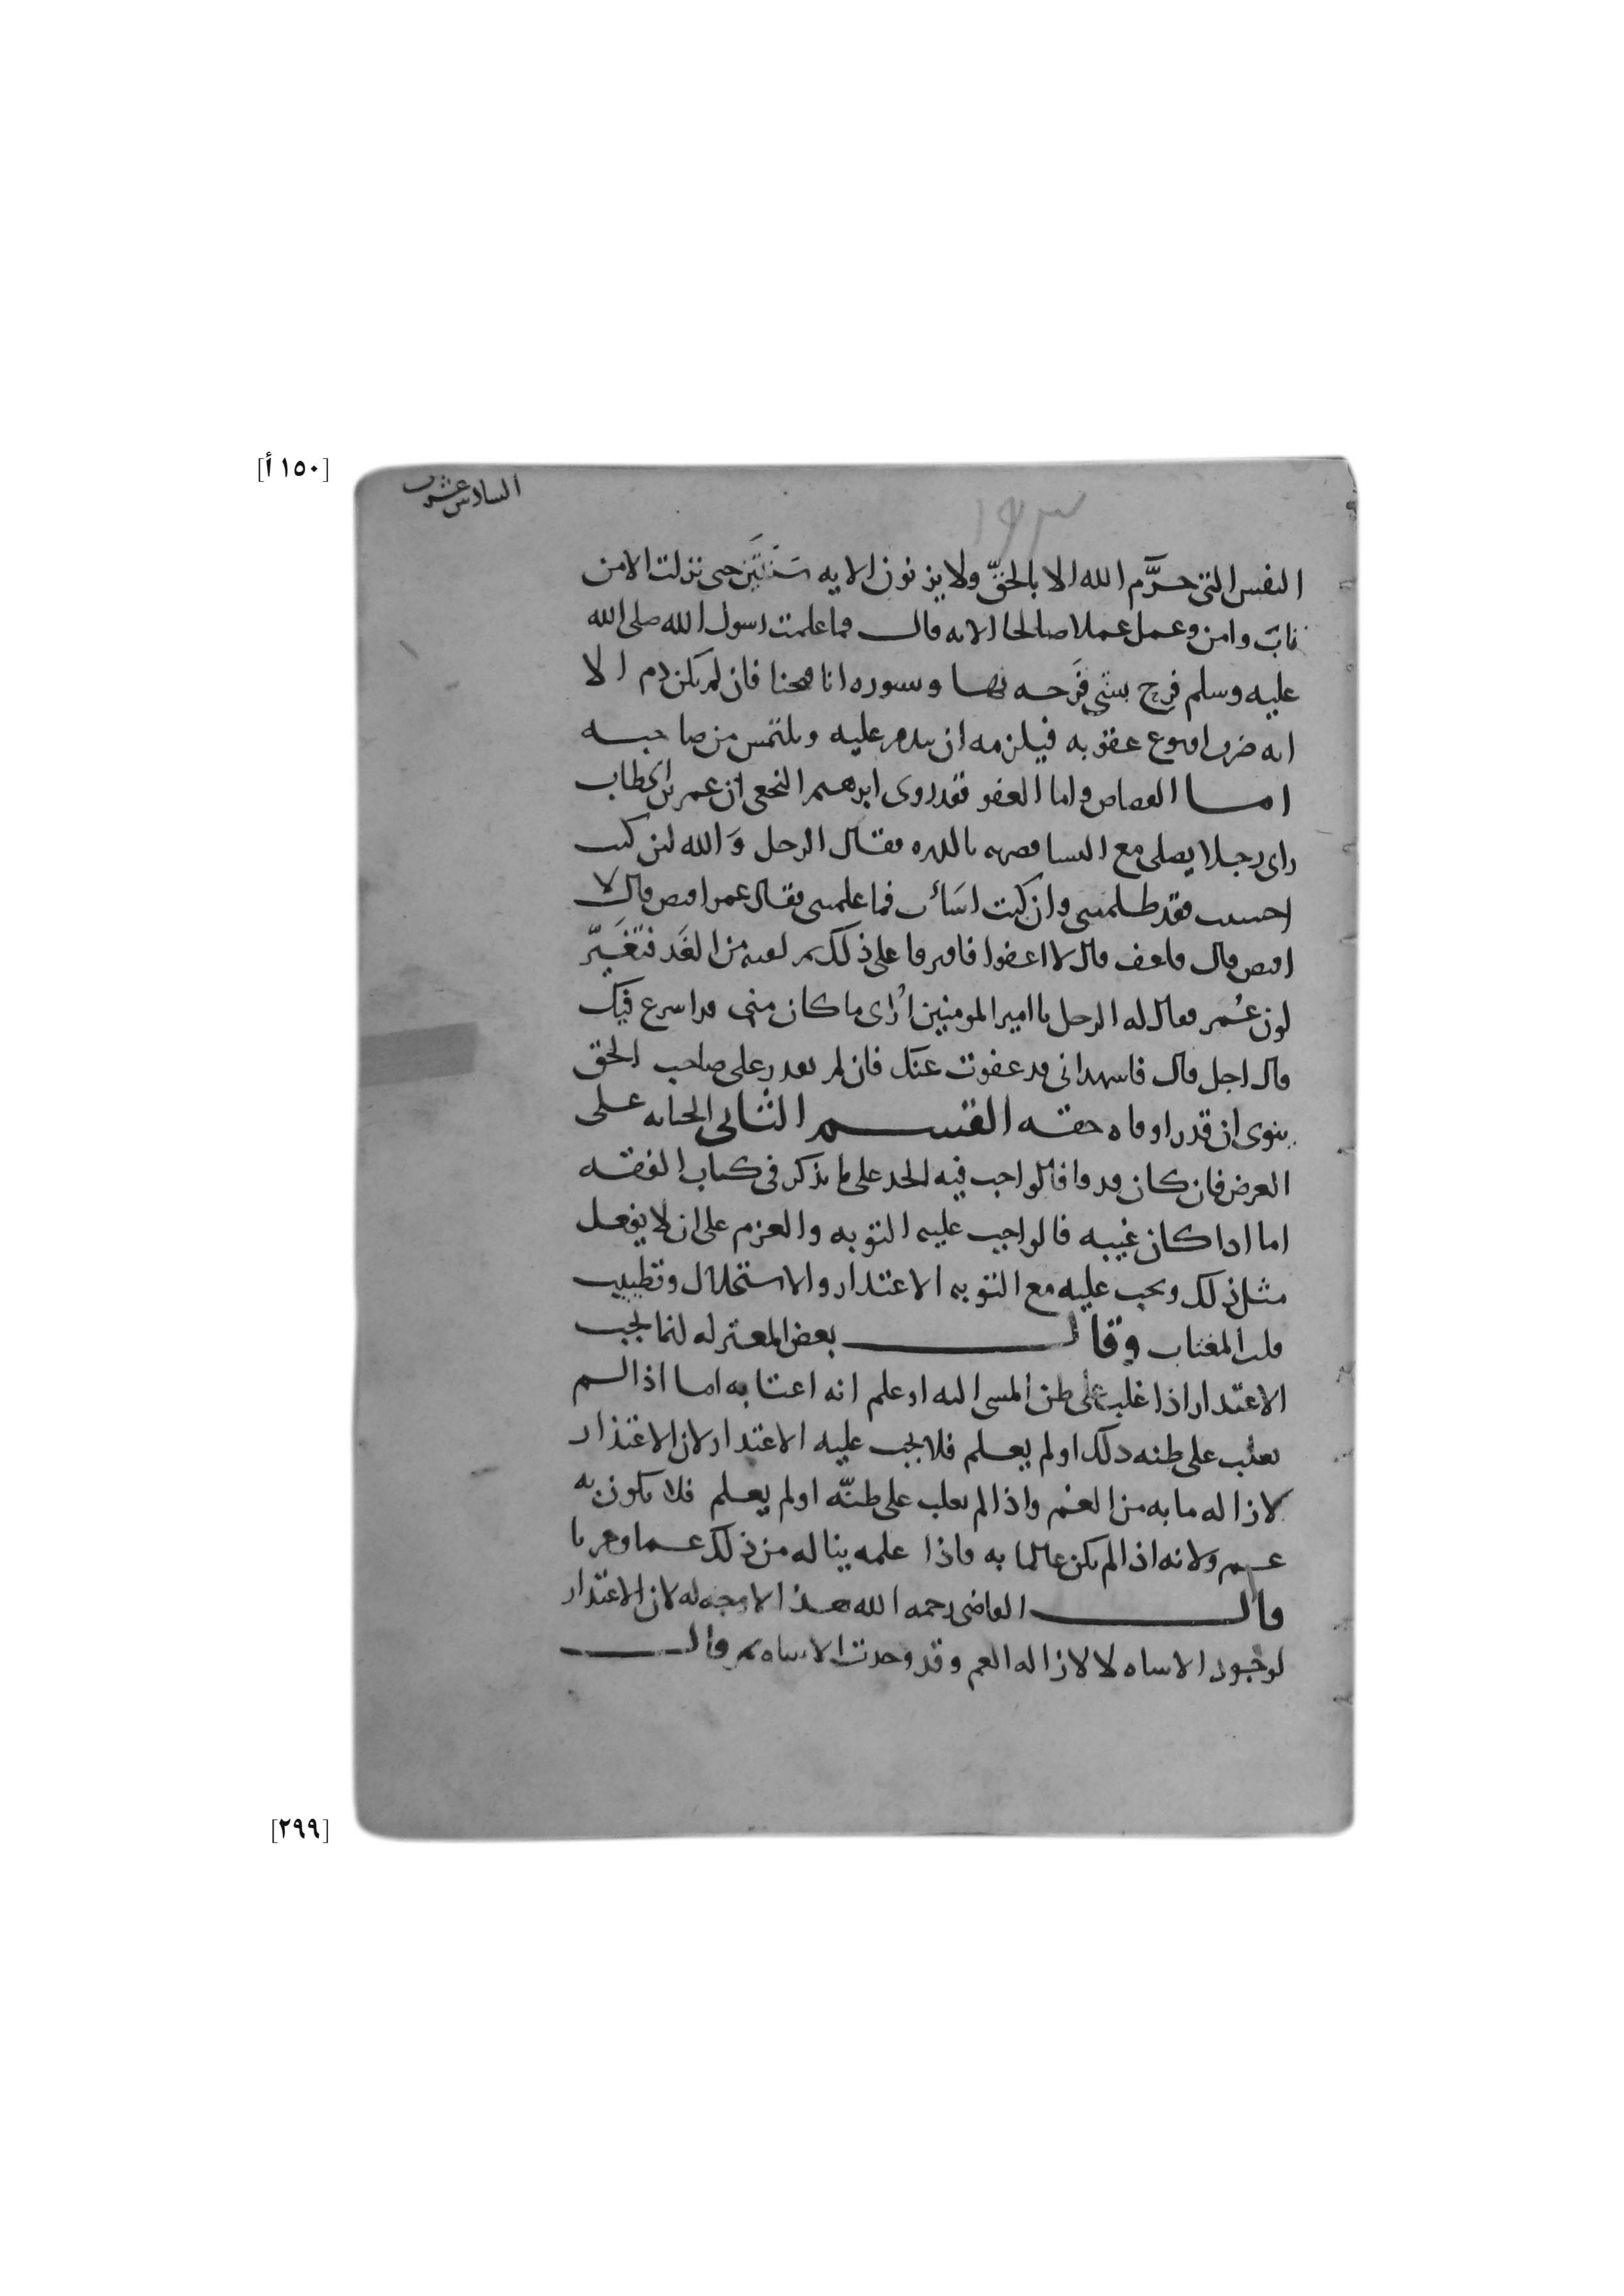 [١٥٠ أ]
السادس عشر
١٩٣
النفس التى حرَّم الله الا بالحقّ ولا يزنون الايه سَنَتَين حى نزلت الا من
تابَ وامن وعمل عملا صالحا الايه قال فما علمت رسول الله صلى الله
عليه وسلم فرح بشى فَرَحه بها وسوره انا فتحنا فان لم يكن دم الا
انه ضرب او نوع عقوبه فيلزمه ان يندم عليه ويلتمس من صاحبه
اما القصاص واما العفو فقد روى ابرهيم النخعى ان عمر بن الخطاب
راى رجلا يصلى مع النسا فضربه بالدره فقال الرجل وَالله لئن كنت
احسنت فقد ظلمتنى وان كنت اسَأت فما علمتنى فقال عمر اقتص قال لا
اقتص قال فاعف قال لا اعفوا فافترقا على ذلك ثم لقيه من الغَد فتغَيّر
لون عُمر فقال له الرجل يا امير المومنين اُرَاى ما كان منى قد اسرع فيك
قال اجل قال فاشهد انى قد عفوت عنك فان لم يقدر على صاحب الحق
ينوى ان قدر اوفاه حقه القسم الثانى الجنايه على
العرض فان كان قدفا فالواجب فيه الحد على ما يذكر فى كتاب الفقه
اما اذا كان غيبه فالواجب عليه التوبه والعزم على ان لا يفعل
مثل ذلك ويجب عليه مع التوبه الاعتذار والاستحلال وتطييب
قلب المغتاب وقال بعض المعتزله انما يجب
الاعتذار اذا غلب على ظن المسى اليه او علم انه اغتابه اما اذا لم
يغلب على ظنه ذلك او لم يعلم فلا يجب عليه الاعتذار لان الاعتذار
لازاله ما به من الغم واذا لم يغلب على ظنّه او لم يعلم فلا يكون به
غم ولانه اذا لم يكن عالما به فاذا علمه يناله من ذلك غما وحزنا
قال القاضى رحمه الله هذا لا وجه له لان الاعتذار
لوجود الاساه لا لازاله الغم وقد وجدت الاساه ثم قال
[٢٩٩]